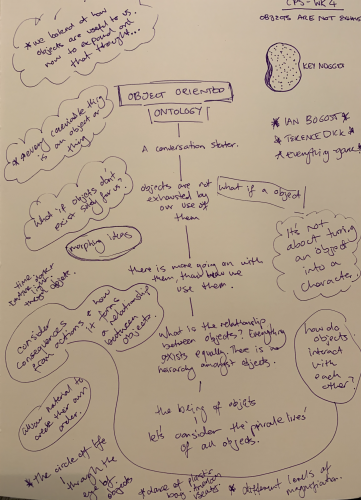 OBJECTS ARE NOT
* we
at how
objects are useful to us.
now to expand on
that thought...
KEYNOSED
* IAN BOGOST
* TERENCE DICK
* Everything
* Every conceivable thing
is an object or
thing
OBJECT ORIENTED
ONTOLOGY
A conversation starter.
What if objects don't
exist solely for us?
objects are not
exhausted by
our use of
them
what if a object
morphing ideas
It's not
about turning
an object
into a
character.
there is more going on with
them, than how we
use them.
time
object.
consider
consequences
from actions & how
it forms
a relationship
between
objects.
what is the relationship
between objects? Everything
exists equally. There is no
amongst objects.
how do
objects
interact
with
each
other?
material to
create their own
order.
the being of objets
let's consider the 'private lives'
of all objects.
* the circle of life
through the
eye of
objects
* dance of plastic
bag.
* different levels of